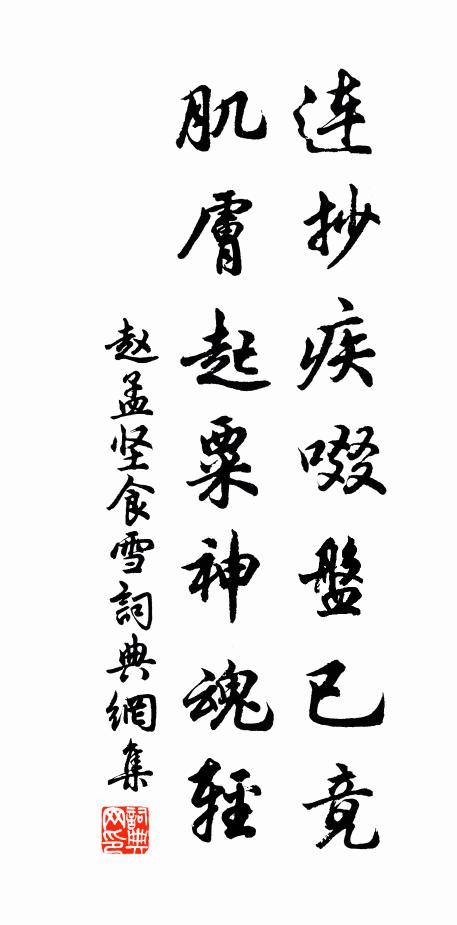 連抄疾啜盤已竟
肌膚起粟神魂輕
赵孟坚食雪詞典網集
詞典网印